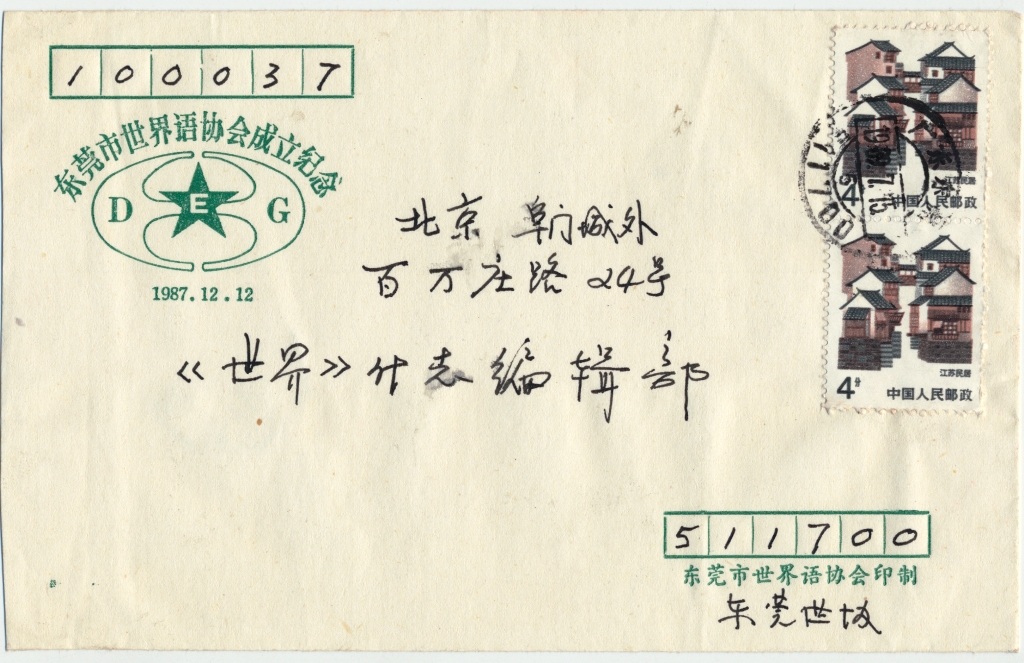 100037
东莞市世界语协会成立纪念
D E G
1987.12.12
北京 阜门城外
百万庄路24号
《世界》什志编辑部
江苏民居
4分 中国人民邮政
江苏民居
4分 中国人民邮政
511700
东莞市世界语协会印制
东莞世协